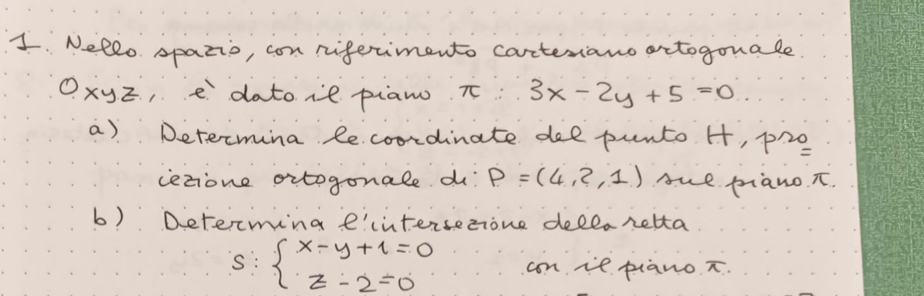 1. Nello spazio, con riferimento cartesiano ortogonale
Oxyz, è dato il piano π: 3x-2y+5=0.
a) Determina le coordinate del punto H, pro=
iezione ortogonale di P=(4,2,1) sul piano π.
b) Determina l'intersezione della retta
s: { x-y+1=0
z-2=0 con il piano π.